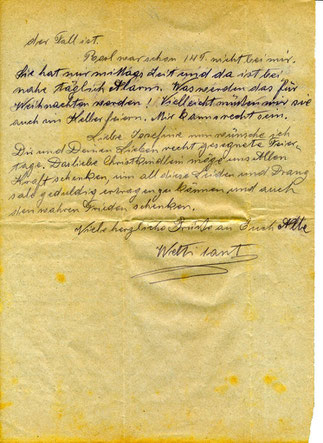 der Fall ist.
war schon 14 T. nicht bei mir.
Sie hat nur mittags Zeit und da ist bei-
nahe täglich Alarm. Was werden das für
Weihnachten werden! Vielleicht müssen wir sie
auch im Keller feiern. Mir kanns recht sein.
Liebe Josefine nun wünsche ich
Dir und Deinen Lieben recht gesegnete Feier-
tage. Das liebe Christkindlein möge uns Allen
Kraft schenken, um all diese Leiden und Drang
sale geduldig ertragen zu können und auch
den wahren Frieden schenken.
Viele herzliche Grüße an Euch Alle